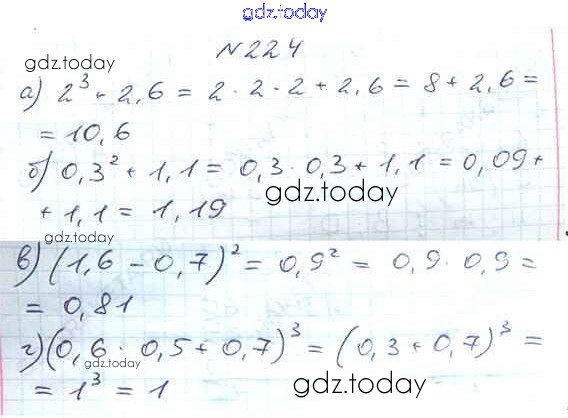 gdz.today
№224
gdz.today
а) 2³ + 2,6 = 2 · 2 · 2 + 2,6 = 8 + 2,6 =
= 10,6
б) 0,3² + 1,1 = 0,3 · 0,3 + 1,1 = 0,09 +
gdz.today
+ 1,1 = 1,19
gdz.today
в) (1,6 – 0,7)² = 0,9² = 0,9 · 0,9 =
= 0,81
г) (0,6 · 0,5 + 0,7)³ = (0,3 + 0,7)³ =
= 1³ = 1
gdz.today
gdz.today